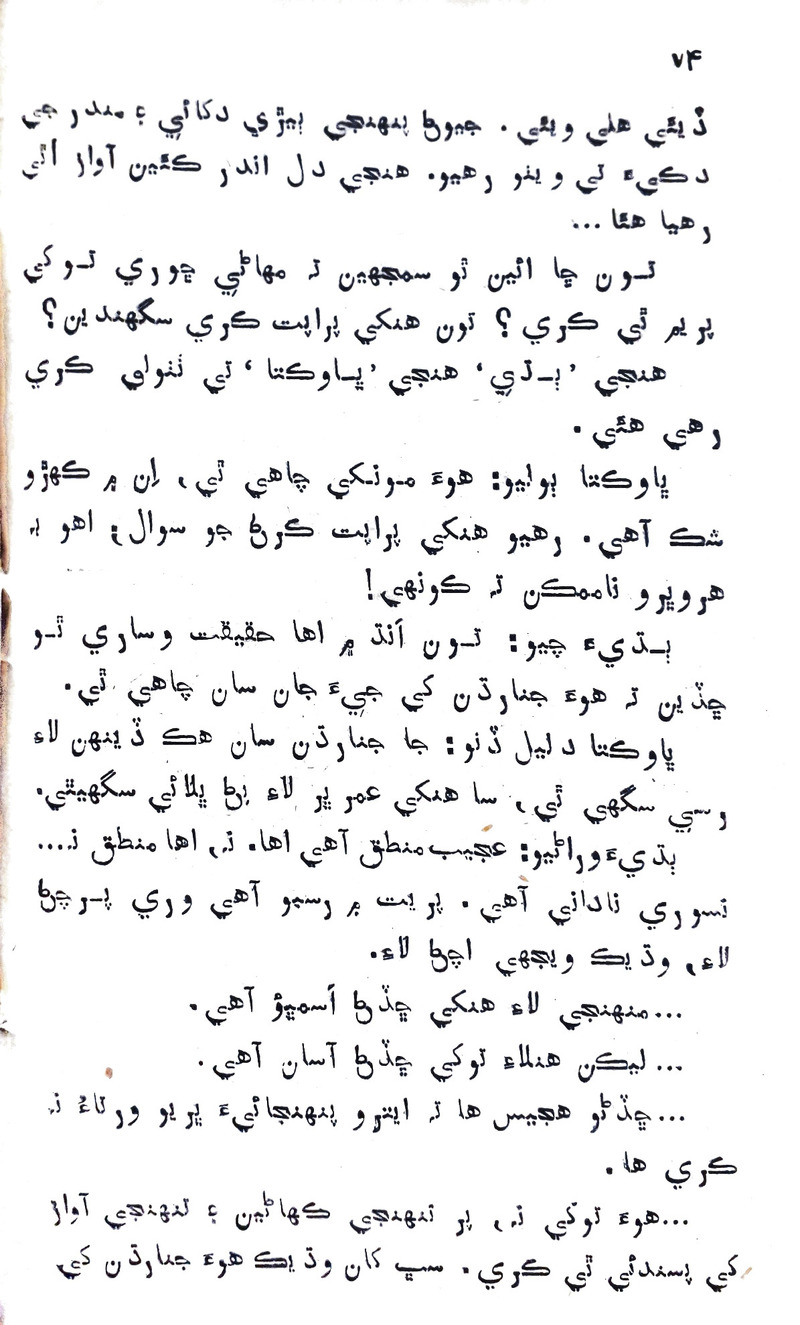 ۷۴
ڏيئي هلي ويئي. جيوڻ پنهنجي ٻيڙي دکائي ۽ مندر جي
دڪيءَ تي ويٺو رهيو. هنجي دل اندر ڪئين آواز اُٿي
رهيا هئا...
تون ڇا ائين ٿو سمجهين ته مهاڻي ڇوري توکي
پريم ٿي ڪري؟ تون هنکي پراپت ڪري سگهندين؟
هنجي ’ٻڌي‘ هنجي ’ڀاوڪتا‘ تي ٺٺولي ڪري
رهي هئي.
ڀاوڪتا ٻوليو: هوءَ مونکي چاهي ٿي، اِن ۾ ڪهڙو
شڪ آهي. رهيو هنکي پراپت ڪرڻ جو سوال؛ اهو به
هروڀرو ناممڪن ته ڪونهي!
ٻڌيءَ چيو: تون اَنڌ ۾ اها حقيقت وساري ٿو
ڇڏين ته هوءَ جنارڌن کي جيءَ جان سان چاهي ٿي.
ڀاوڪتا دليل ڏنو: جا جنارڌن سان هڪ ڏينهن لاءِ
رسي سگهي ٿي، سا هنکي عمر ڀر لاءِ بڻ ڀلائي سگهيٿي.
ٻڌيءَ وراڻيو: عجيب منطق آهي اها. نه، اها منطق نه....
نسوري ناداني آهي. پريت ۾ رسبو آهي وري پرچڻ
لاءِ، وڌيڪ ويجهي اچڻ لاءِ.
...منهنجي لاءِ هنکي ڇڏڻ اَسمڀوَ آهي.
... ليڪن هنلاءِ توکي ڇڏڻ آسان آهي.
...ڇڏڻو هجيس ها ته ايترو پنهنجائيءَ ڀريو ورتاءُ نه
ڪري ها.
...هوءَ توکي نه، پر تنهنجي ڪهاڻين ۽ تنهنجي آواز
کي پسندئي ٿي ڪري. سڀ کان وڌيڪ هوءَ جنارڌن کي